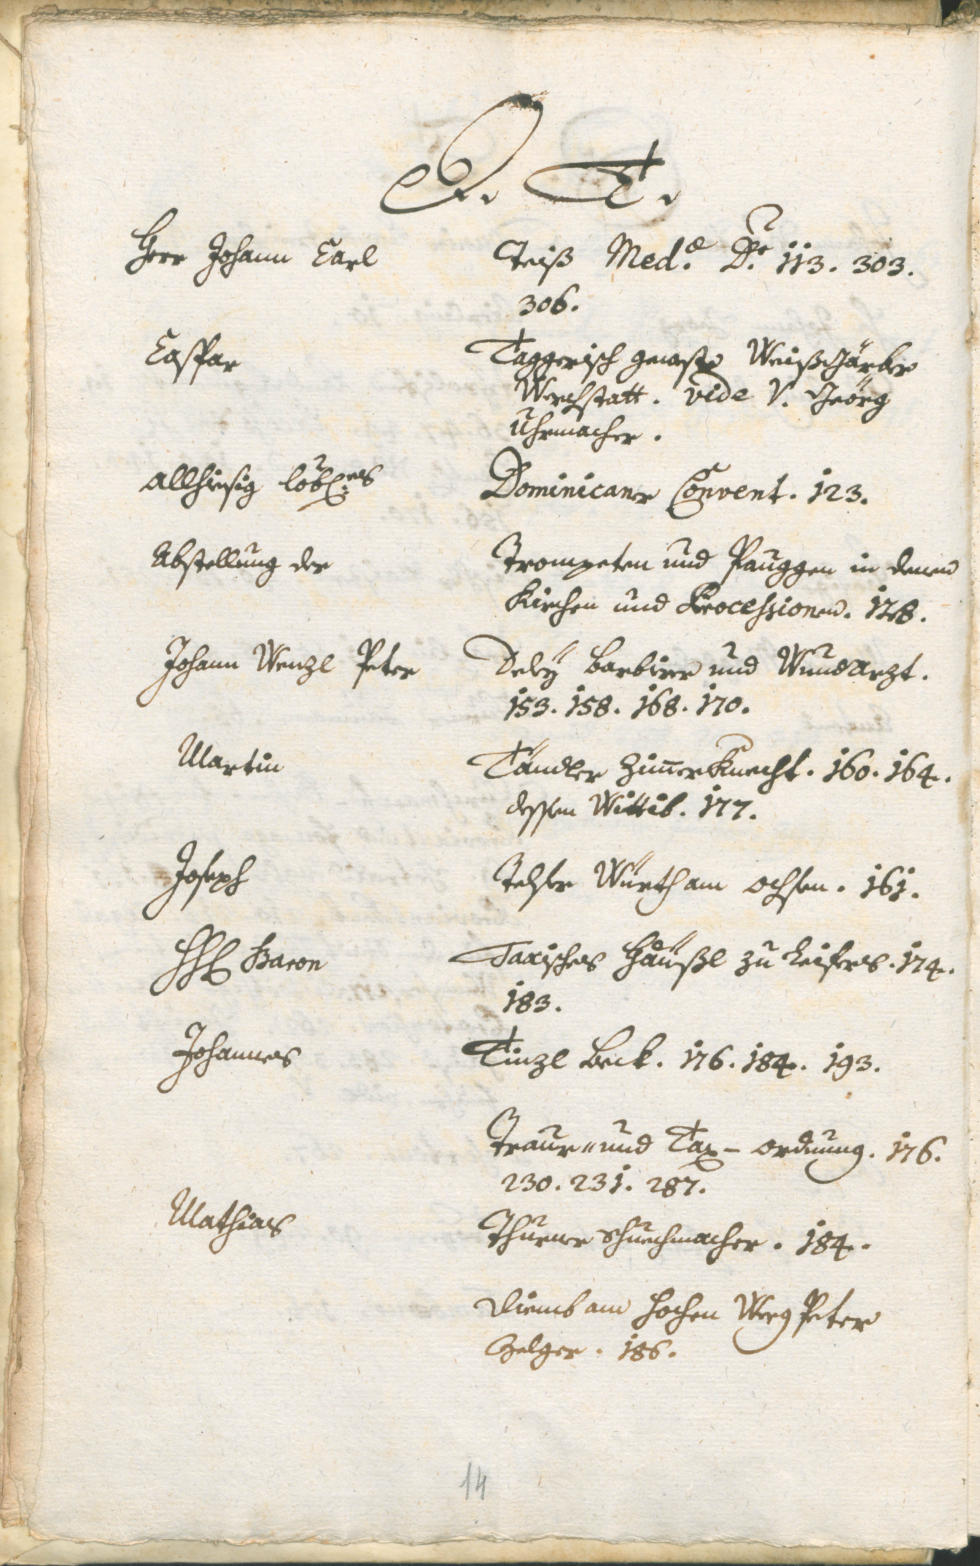 D. T.
Herr Johann Carl Theiß Med.e D.r 113. 303.
306.
Caspar Taggerisch gewaste Weißgärber
Werchstatt. vide V. Georg
Uhrmacher.
Allhiesig löbl.es Dominicaner Convent. 123.
Abstellung der Trompeten und Pauggen in denen
Kirchen und Processionen. 128.
Johann Wenzl Peter Deby barbirer und WundArzt.
153. 158. 168. 170.
Martin Tändler Zimerknecht. 160. 164.
dessen Wittib. 177.
Joseph Würth am ochsen. 161.
Baron Taxisches Häußl zu Leifers. 174.
183.
Johannes Tinzl beck. 176. 184. 193.
Traur- und Tax-ordnung. 176.
230. 231. 287.
Mathias Thurner Schuechmacher. 184.
am hochen Weeg Peter
Zelger. 186.
14